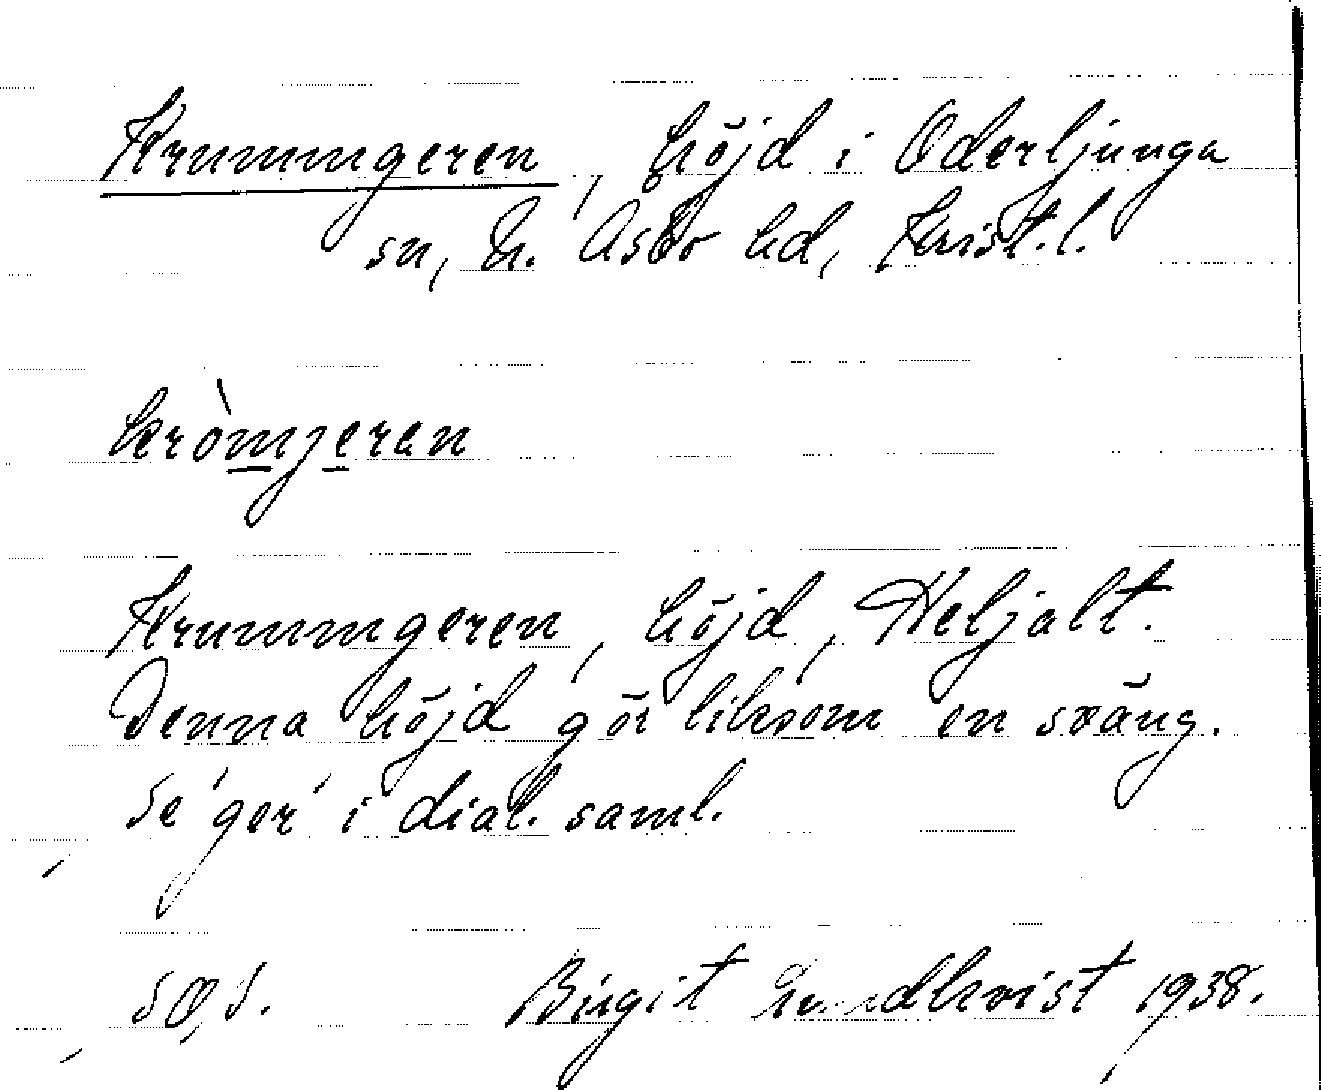 Krummgeren, höjd i Oderljunga
sn, N. Åsbo hd, Krist. l.
kròmjeren
Krummgeren, höjd, Heljalt.
Denna höjd gör liksom en sväng.
Se 'ger' i dial. saml.
Birgit 1938.